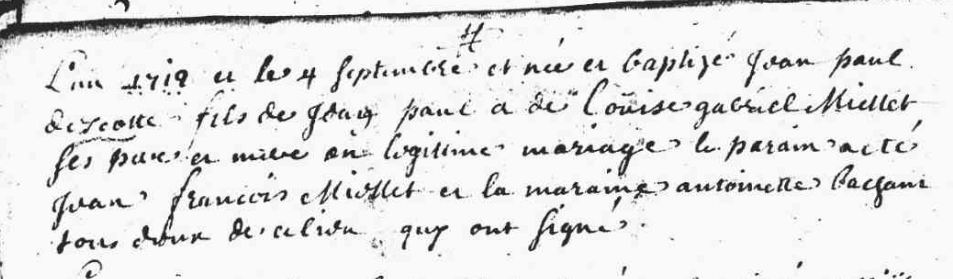 L'an 1712 et le 4 septembre et née et baptizé Jean paul
descotte fils de Jean paul a de Loüise gabriel Miellet
ses pere et mere en legitime mariage le parain a eté
Jean francois Miellet et la maraine antoinette
tous deux de ce lieu quy ont signé